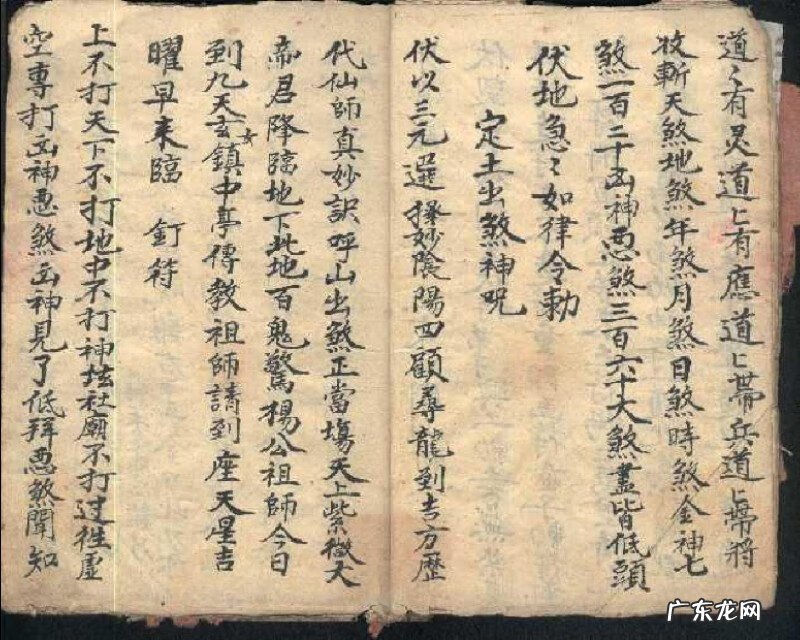 道〻有灵道〻有應道〻帶兵道〻帶將
收斬天煞地煞年煞月煞日煞時煞金神七
煞一百二十凶神恶煞三百六十大煞盡皆低頭
伏地急〻如律令勅
定土出煞神咒
伏以三元選擇妙陰陽四顧尋龍到吉方歷
代仙師真妙訣呼山出煞正當塲天上紫微大
帝君降臨地下此地百鬼驚楊公祖師今日
到九天玄女鎮中亭傳教祖師請到座天星吉
曜早来臨 釘符
上不打天下不打地中不打神坛社廟不打过往虛
空專打凶神恶煞凶神見了低拜恶煞聞知
广东龙网